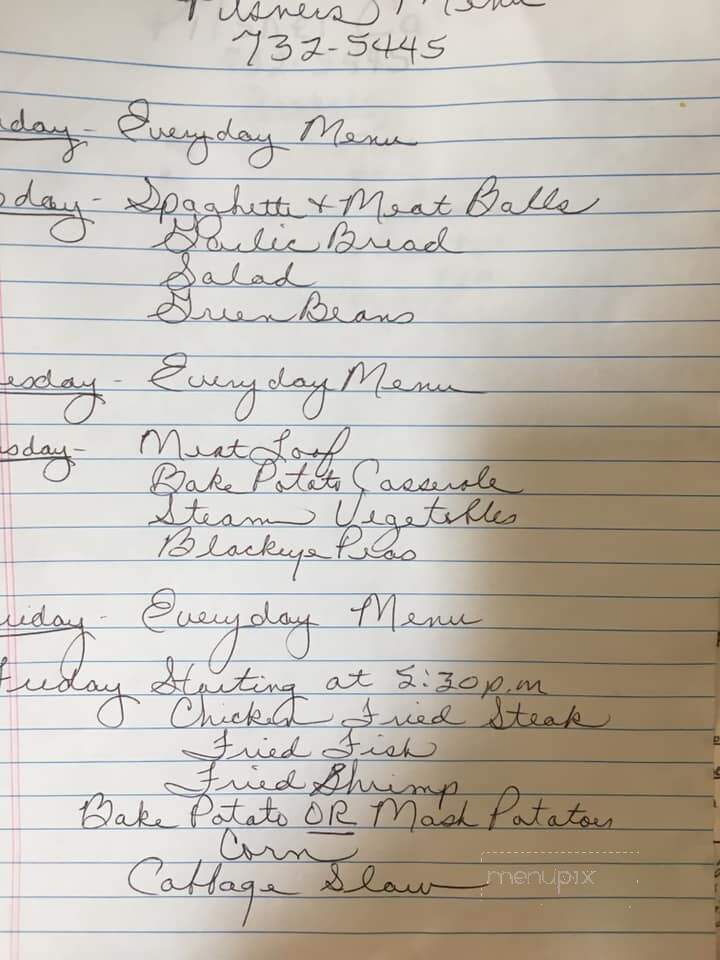 Pilsners Menu
732-5445
day - Everyday Menu
sday - Spaghetti & Meat Balls
Garlic Bread
Salad
Green Beans
esday - Everyday Menu
sday - Meat Loof
Bake Potato Casserole
Steam Vegetables
Blackeye Peas
riday - Everyday Menu
Friday Starting at 5:30 p.m
Chicken Fried Steak
Fried Fish
Fried Shrimp
Bake Potato OR Mash Potatoes
Corn
Cabbage Slaw
menupix